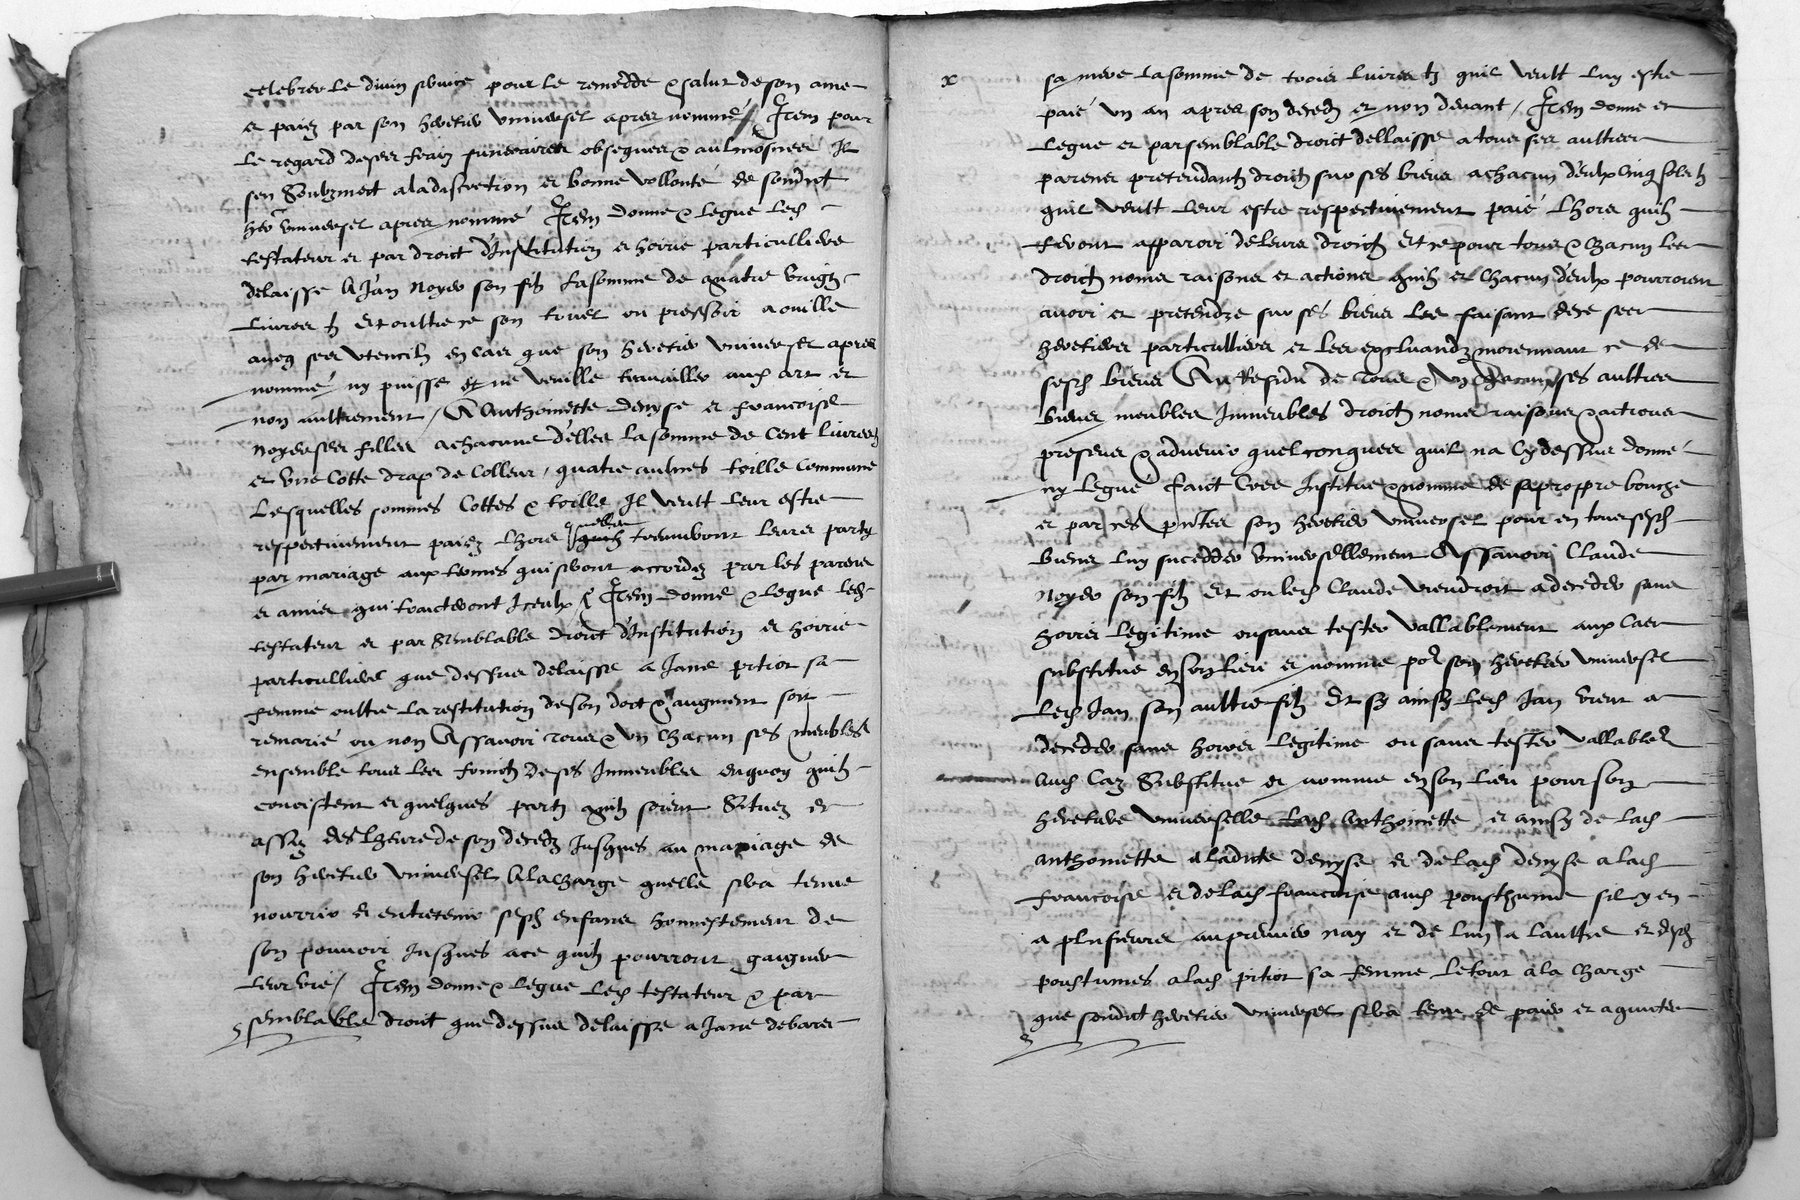 celebrer le divin service pour le remedde & salut de son ame
et paiez par son heretier universel apres nommé / Item pour
le regard de ses fraiz funeraires obseques & aulmosnes Il
sen soubzmect a la discretion et bonne vollonté de sondict
her universel apres nommé Item donne & legue led
testateur et par droict d'Institution et hoirie particulliere
delaisse A Jan Noyer son filz la somme de quatre vingtz
livres tz Et oultre ce son treuil ou pressoir a ouille
aveq ses utencilz en cas que son heretier universel apres
nommé ny puisse et ne veuille travailler aux art et
non aultrement / A Anthoinette Denyse et francoise
Noyer ses filles a chacune d'elles la somme de Cent livres tz
et une Cotte drap de Colleur, quatre aulnes toille Commune
Lesquelles sommes Cottes & toille Il veult leur estre
respectivement paiez lhors quelles treuveront leurs party
par mariage aux termes qui seront accordez par les parens
et amis qui traicteront Iceulx / Item donne & legue led
testateur et par semblable droict d'Institution et hoirie
particulliere que dessus delaisse a Jane pitiot sa
femme oultre la restitution de son doct & augment soit
remarié ou non Assavoir tous & un chacun ses meubles
ensemble tous les fruictz de ses Immeubles en quoy quilz
concistent et quelques partz quilz soient Situez et
assiz des lheure de son decedz Jusques au mariage de
son heretier universel A la charge quelle sera tenue
nourrir et entretenir sesd enfans honnestement de
son pouvoir Jusques a ce quilz pourront gaigner
leur vie / Item donne & legue led testateur & par
semblable droict que dessus delaisse a Jane debares
sa mere la somme de trois livres tz quil veult luy estre
paié un an apres son decedz et non devant / Item donne et
legue et par semblable droict dellaisse a tous ses aultres
parens pretendantz droictz sur ses biens a chacun d'eulx Cinq solz tz
quil veult leur estre respectivement paié lhors quilz
feront apparoir de leurs droictz Et ce pour tous & chacun les
droictz noms raisons et actions quilz et chacun d'eulx pourroient
avoir et pretendre sur ses biens les faisant de ce ses
heretiers particulliers et les excluandz moiennant ce de
sesd biens Au Residu de Tous & un chacun ses aultres
biens meubles Immeubles droictz noms raisons & actions
presens & advenir quelconques quil na Cy dessus donné
ny legué faict Cree Institue & nomme de sa propre bouche
et par ces pntes son heretier universel pour en tous sesd
biens luy succedder universellement Assavoir Claude
Noyer son filz Et ou led Claude viendroit a decedder sans
hoirs legitime ou sans tester vallablement aux Cas
substitue en son lieu et nomme por son heretier universel
led Jan son aultre filz Et sy ainsy led Jan vient a
decedder sans hoirs legitime ou sans tester vallablet
Aud Caz Substitue et nomme en son lieu pour son
heretiere universelle lad Anthoinette et ainsy de lad
anthoinette a ladicte denyse et de lad denyse a lad
francoise et de lad francoise aud pousthume sil y en
a plusieurs au premier nay et de lun a laultre et desd
poustumes a lad pitiot sa femme le tout a la charge
que sondict heretier universel sera tenu de paier et aquiter